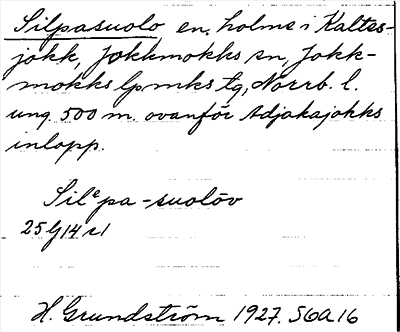 Silpasuolo, en. holme i Kaltes-
jokk, Jokkmokks sn, Jokk-
mokks lpmks tg, Norrb. l.
ung. 500 m. ovanför Adjakajokks
inlopp.
Silᵉpa-suolōv
H. Grundström 1927. S6a16